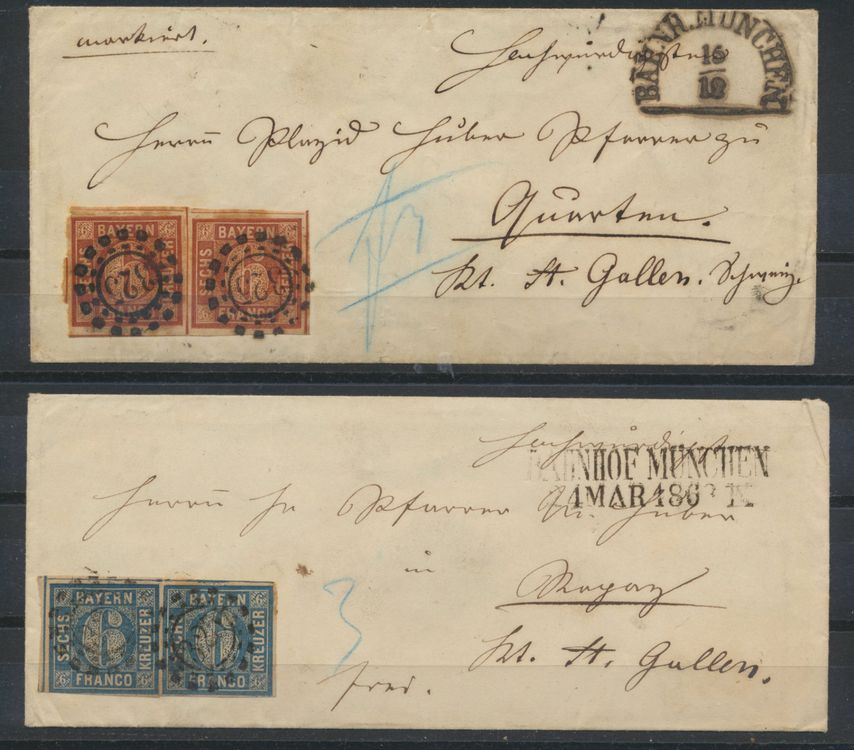 markiert.
Hochwürdigsten
BAHNH. MÜNCHEN
15
12
Herrn Plazid Huber Pfarrer zu
Quarten.
Kt. St. Gallen. Schweiz.
BAYERN
SECHS
6
KREUZER
FRANCO
325
BAYERN
SECHS
6
KREUZER
FRANCO
325
Hochwürdigst
BAHNHOF MÜNCHEN
4 MAR 186 IV
Herrn Hr Pfarrer Huber
in
Kt. St. Gallen.
3
frei.
BAYERN
SECHS
6
KREUZER
FRANCO
BAYERN
6
KREUZER
FRANCO